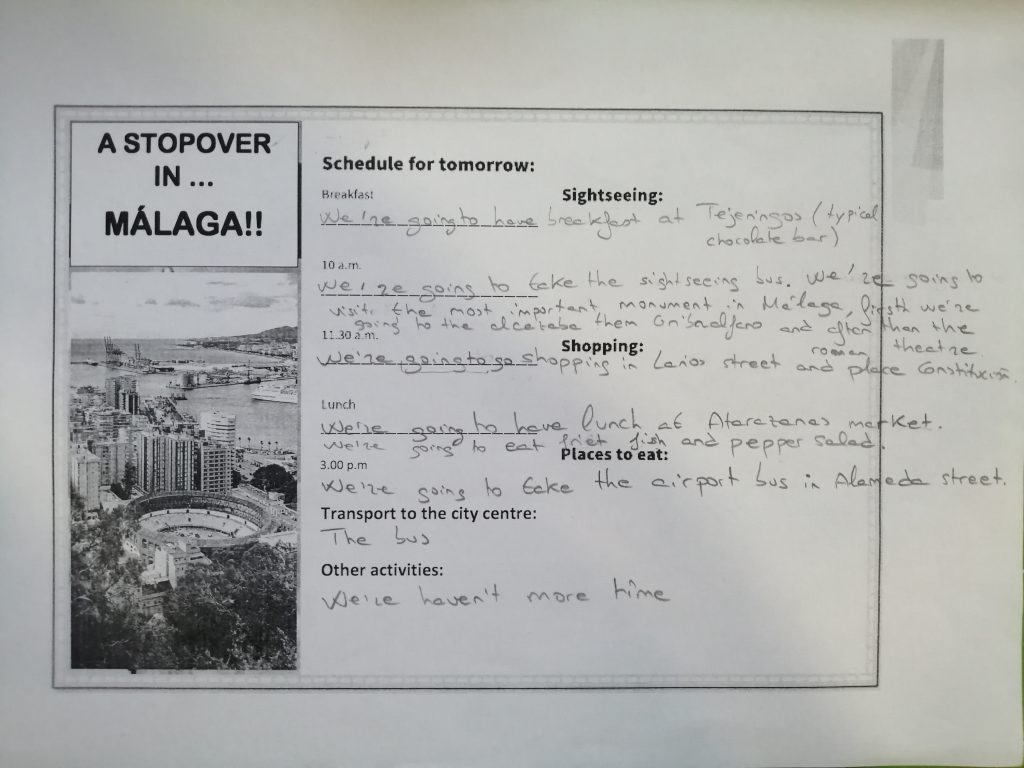 A STOPOVER
IN ...
MÁLAGA!!
Schedule for tomorrow:
Breakfast
Sightseeing:
We're going to have breakfast at Tejeringos (typical
chocolate bar)
10 a.m.
We're going to take the sightseeing bus. We're going to
visit the most important monument in Málaga, firsth we're
going to the alcazaba them Gribralfaro and after than the
roman theatre
11.30 a.m.
Shopping:
We're going to go shopping in Larios street and place Constitución.
Lunch
We're going to have lunch at Atarazanas market.
We're going to eat friet fish and pepper salad.
Places to eat:
3.00 p.m
We're going to take the airport bus in Alameda street.
Transport to the city centre:
The bus
Other activities:
We're haven't more time